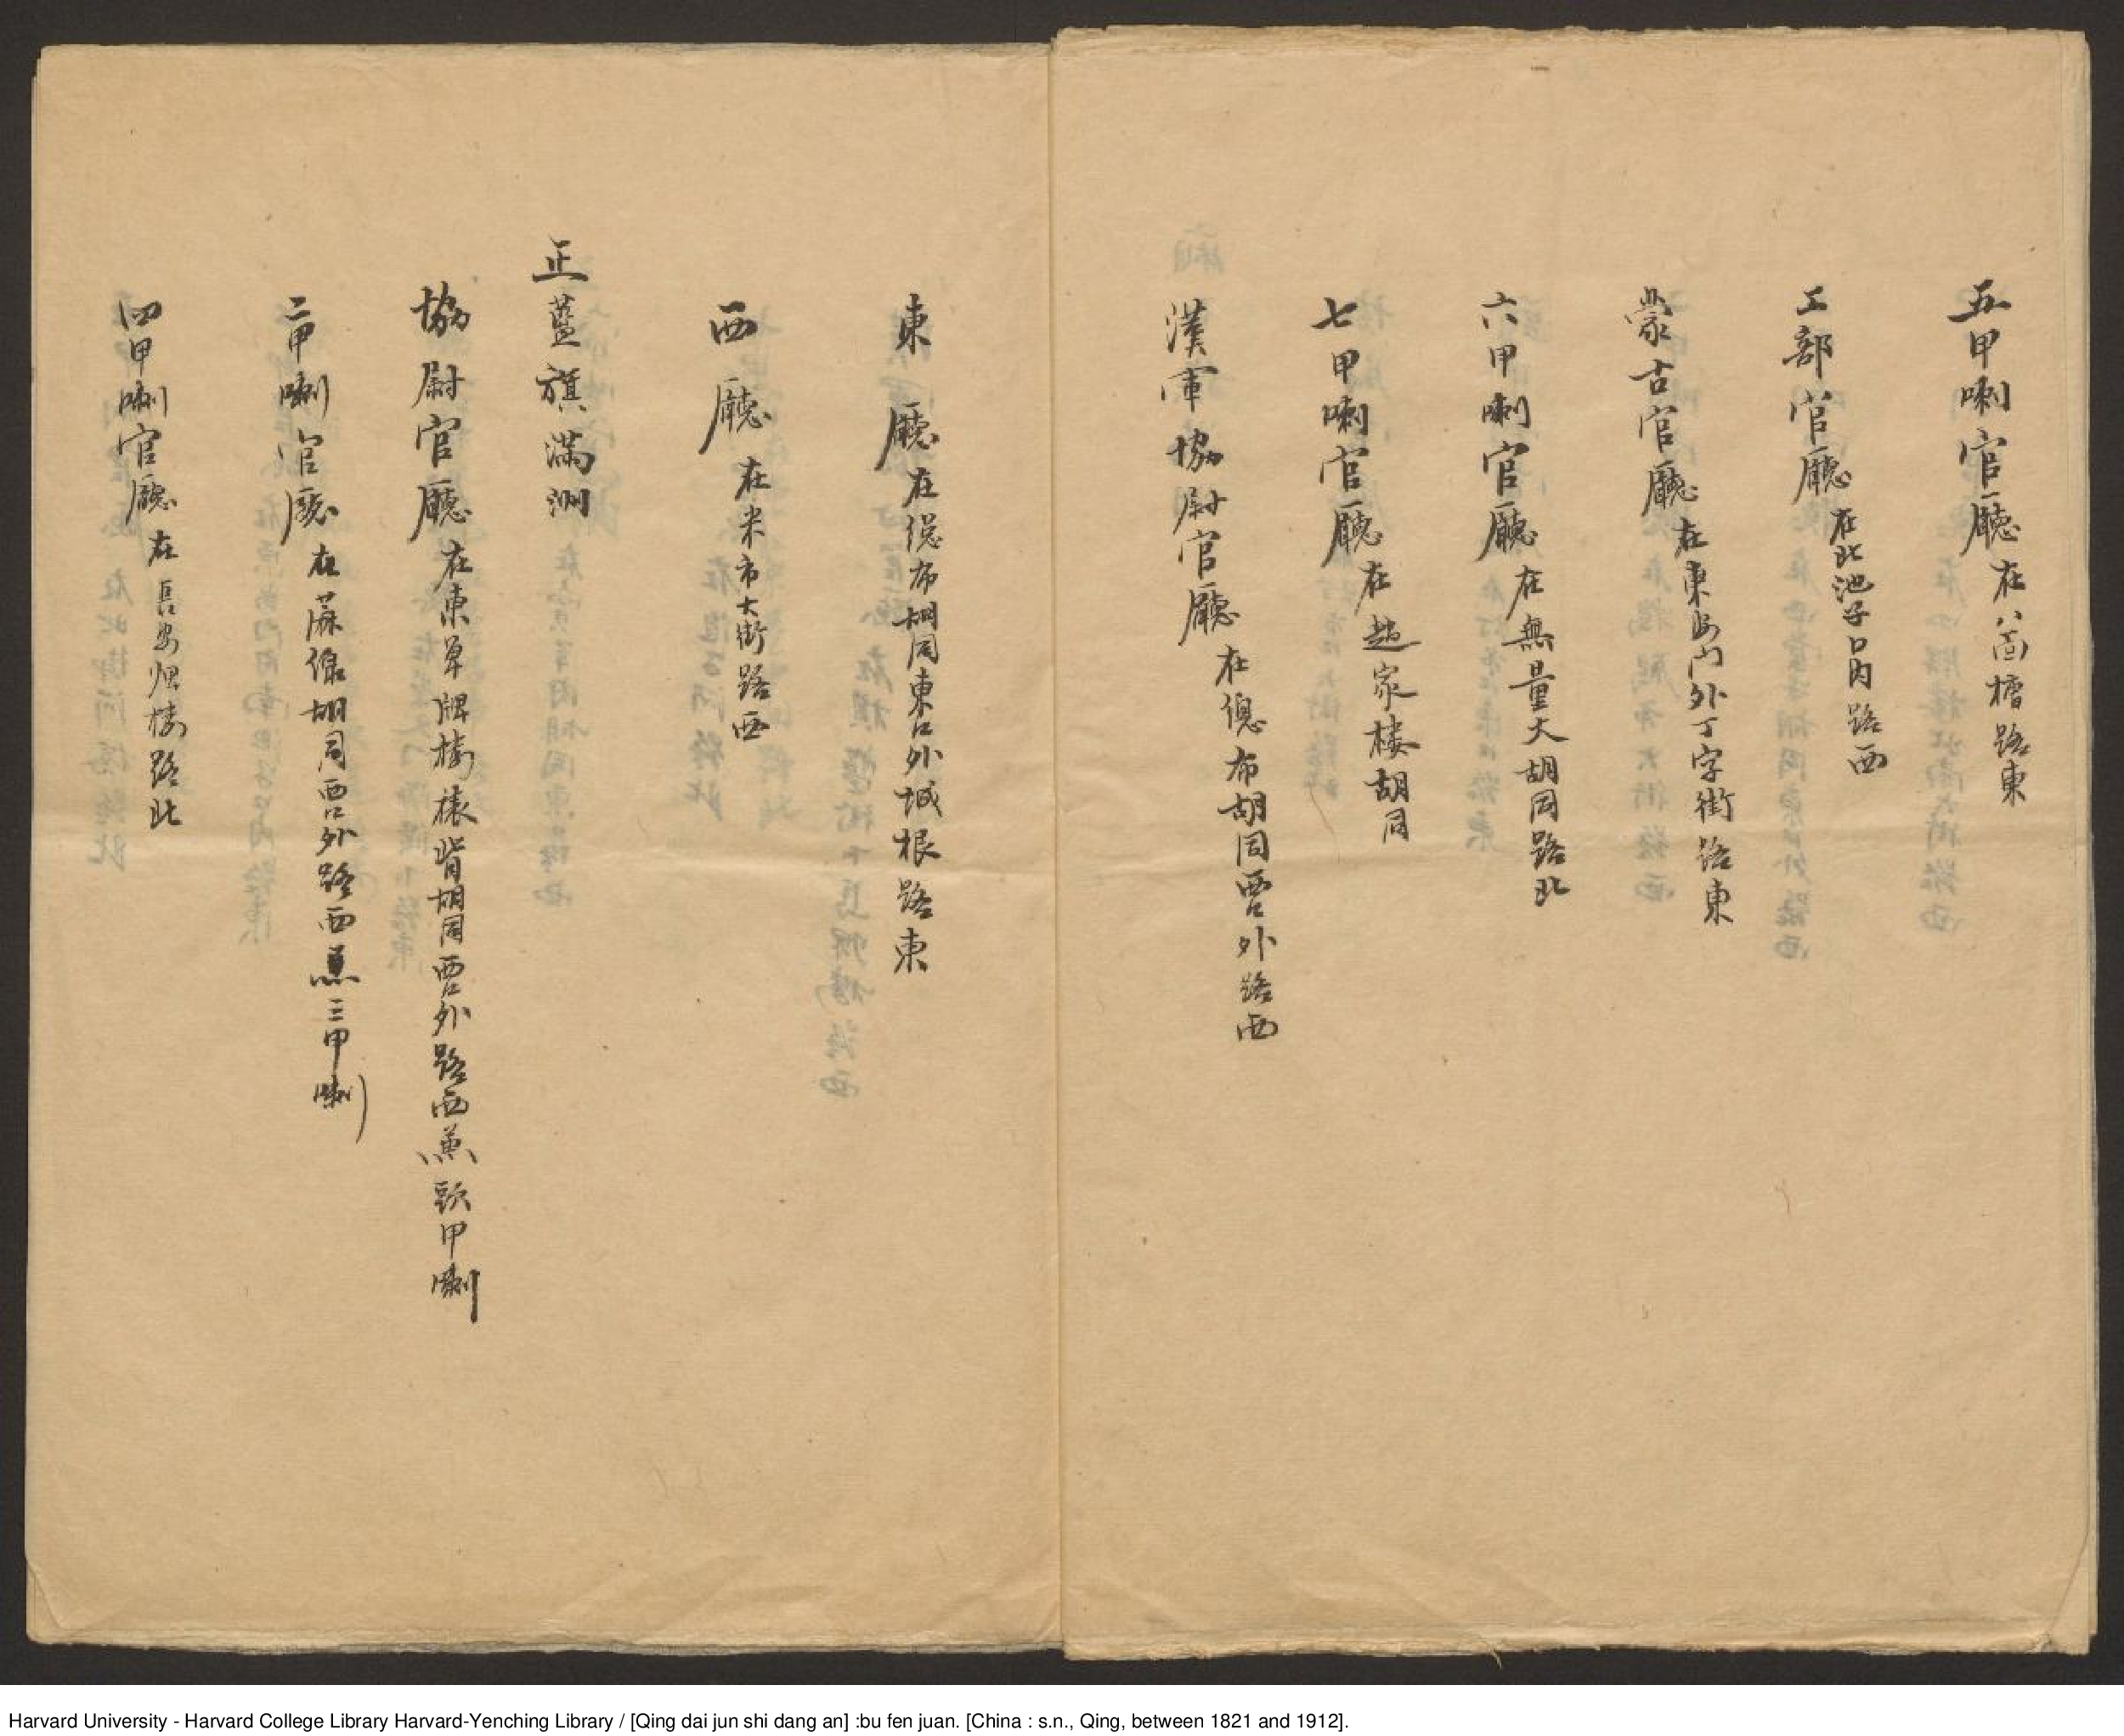 五甲喇官廳在八面槽路東
工部官廳在北池子口內路西
蒙古官廳在東安门外丁字街路東
六甲喇官廳在無量大胡同路北
七甲喇官廳在趙家楼胡同
漢軍協尉官廳在偬布胡同西口外路西
東廳在偬布胡同東口外城根路東
西廳在米市大街路西
正藍旗滿洲
協尉官廳在東单牌楼裱背胡同西口外路西兼頭甲喇
二甲喇官廳在蔴線胡同西口外路西兼三甲喇
四甲喇官廳在長安牌楼路北
Harvard University - Harvard College Library Harvard-Yenching Library / [Qing dai jun shi dang an] :bu fen juan. [China : s.n., Qing, between 1821 and 1912].